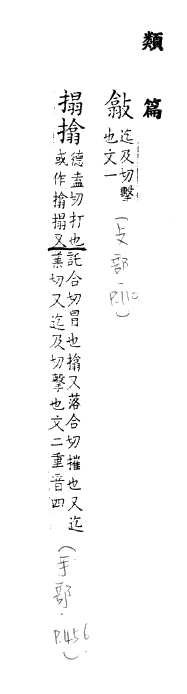 類篇
㩉迄及切擊
也文一
(攴部.P.110)
搨搚德盍切打也託合切冒也搚又落合切摧也又迄
或作搚搨又業切又迄及切擊也文二重音四
(手部.P.456)